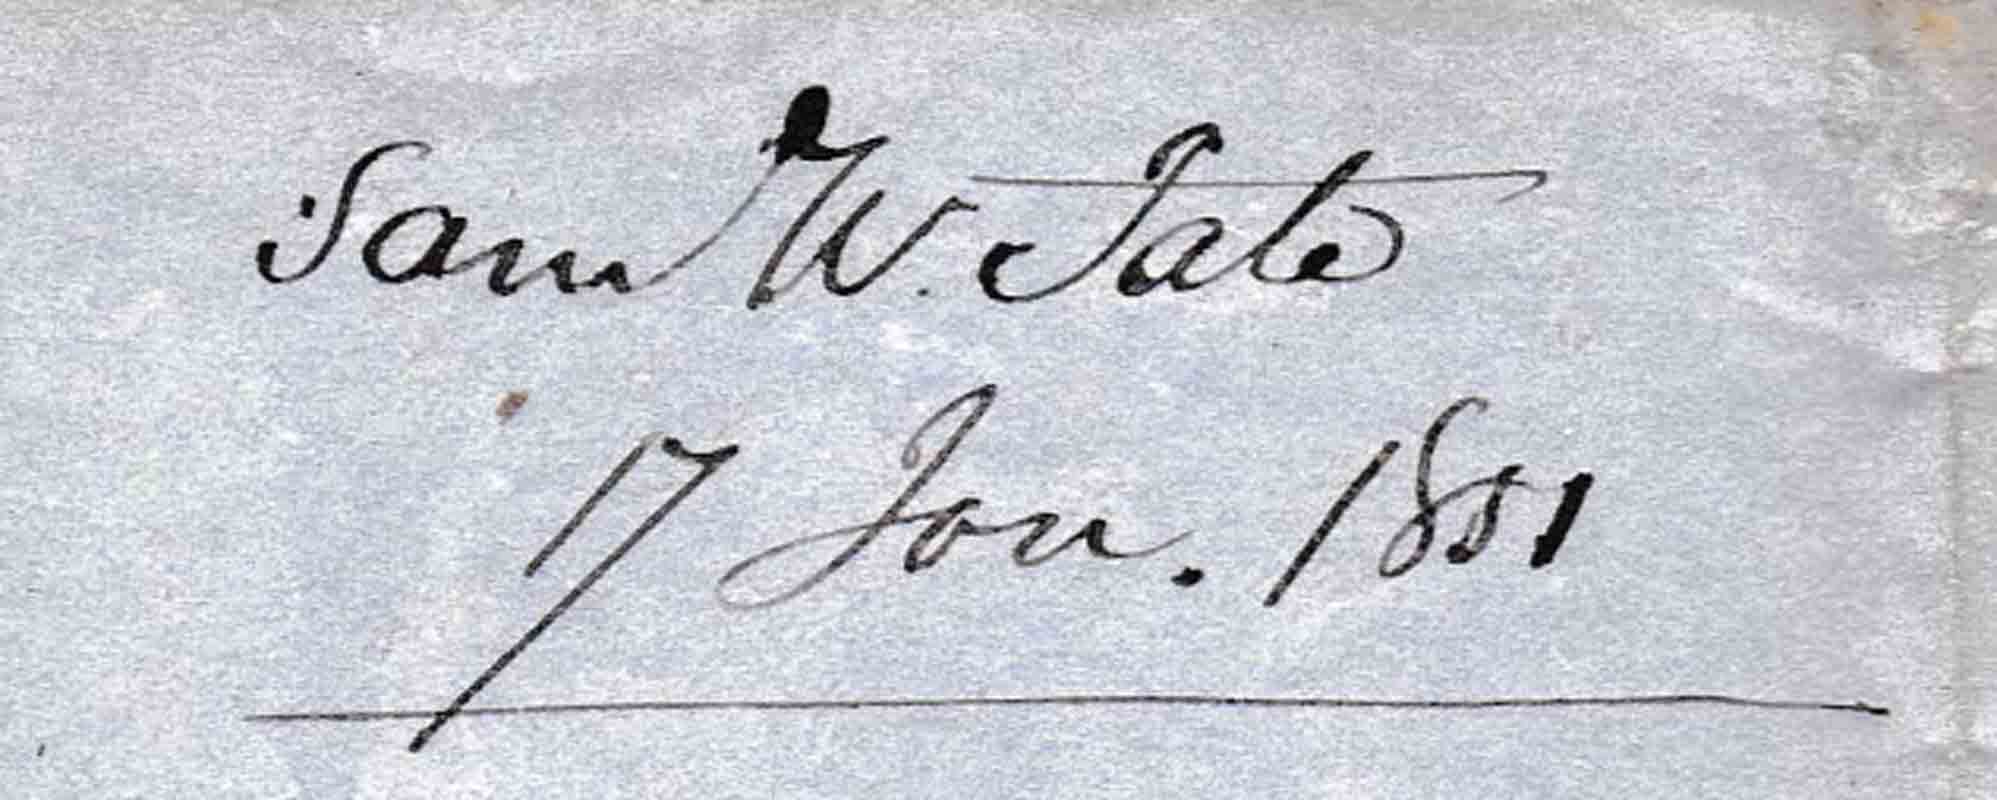 Saml W. Tate
17 Jan. 1851